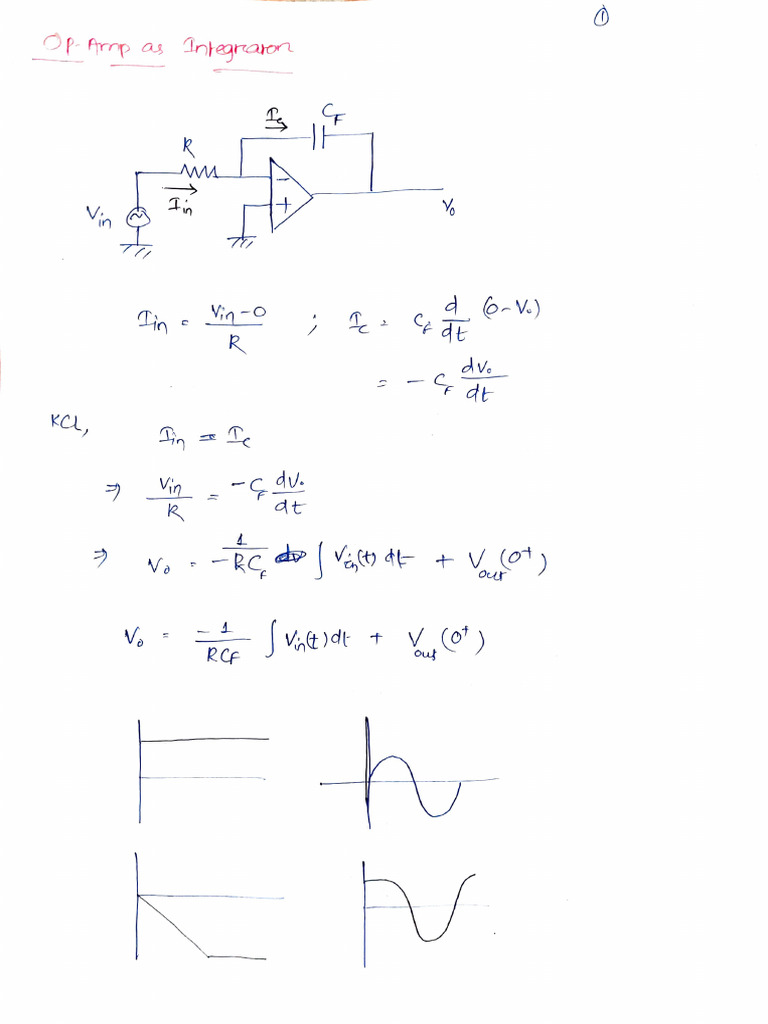 ①
Op-Amp as Integrator
I_c C_F
R
I_in
V_in
−
+
V_o
I_in = (V_in − 0)/R ; I_c = C_F d/dt (0 − V_o)
= − C_F dV_o/dt
KCL,
I_in = I_c
⇒ V_in/R = − C_F dV_o/dt
⇒ V_o = − 1/(RC_F) ∫ V_in(t) dt + V_out(0⁺)
V_o = −1/(RC_F) ∫ V_in(t) dt + V_out(0⁺)